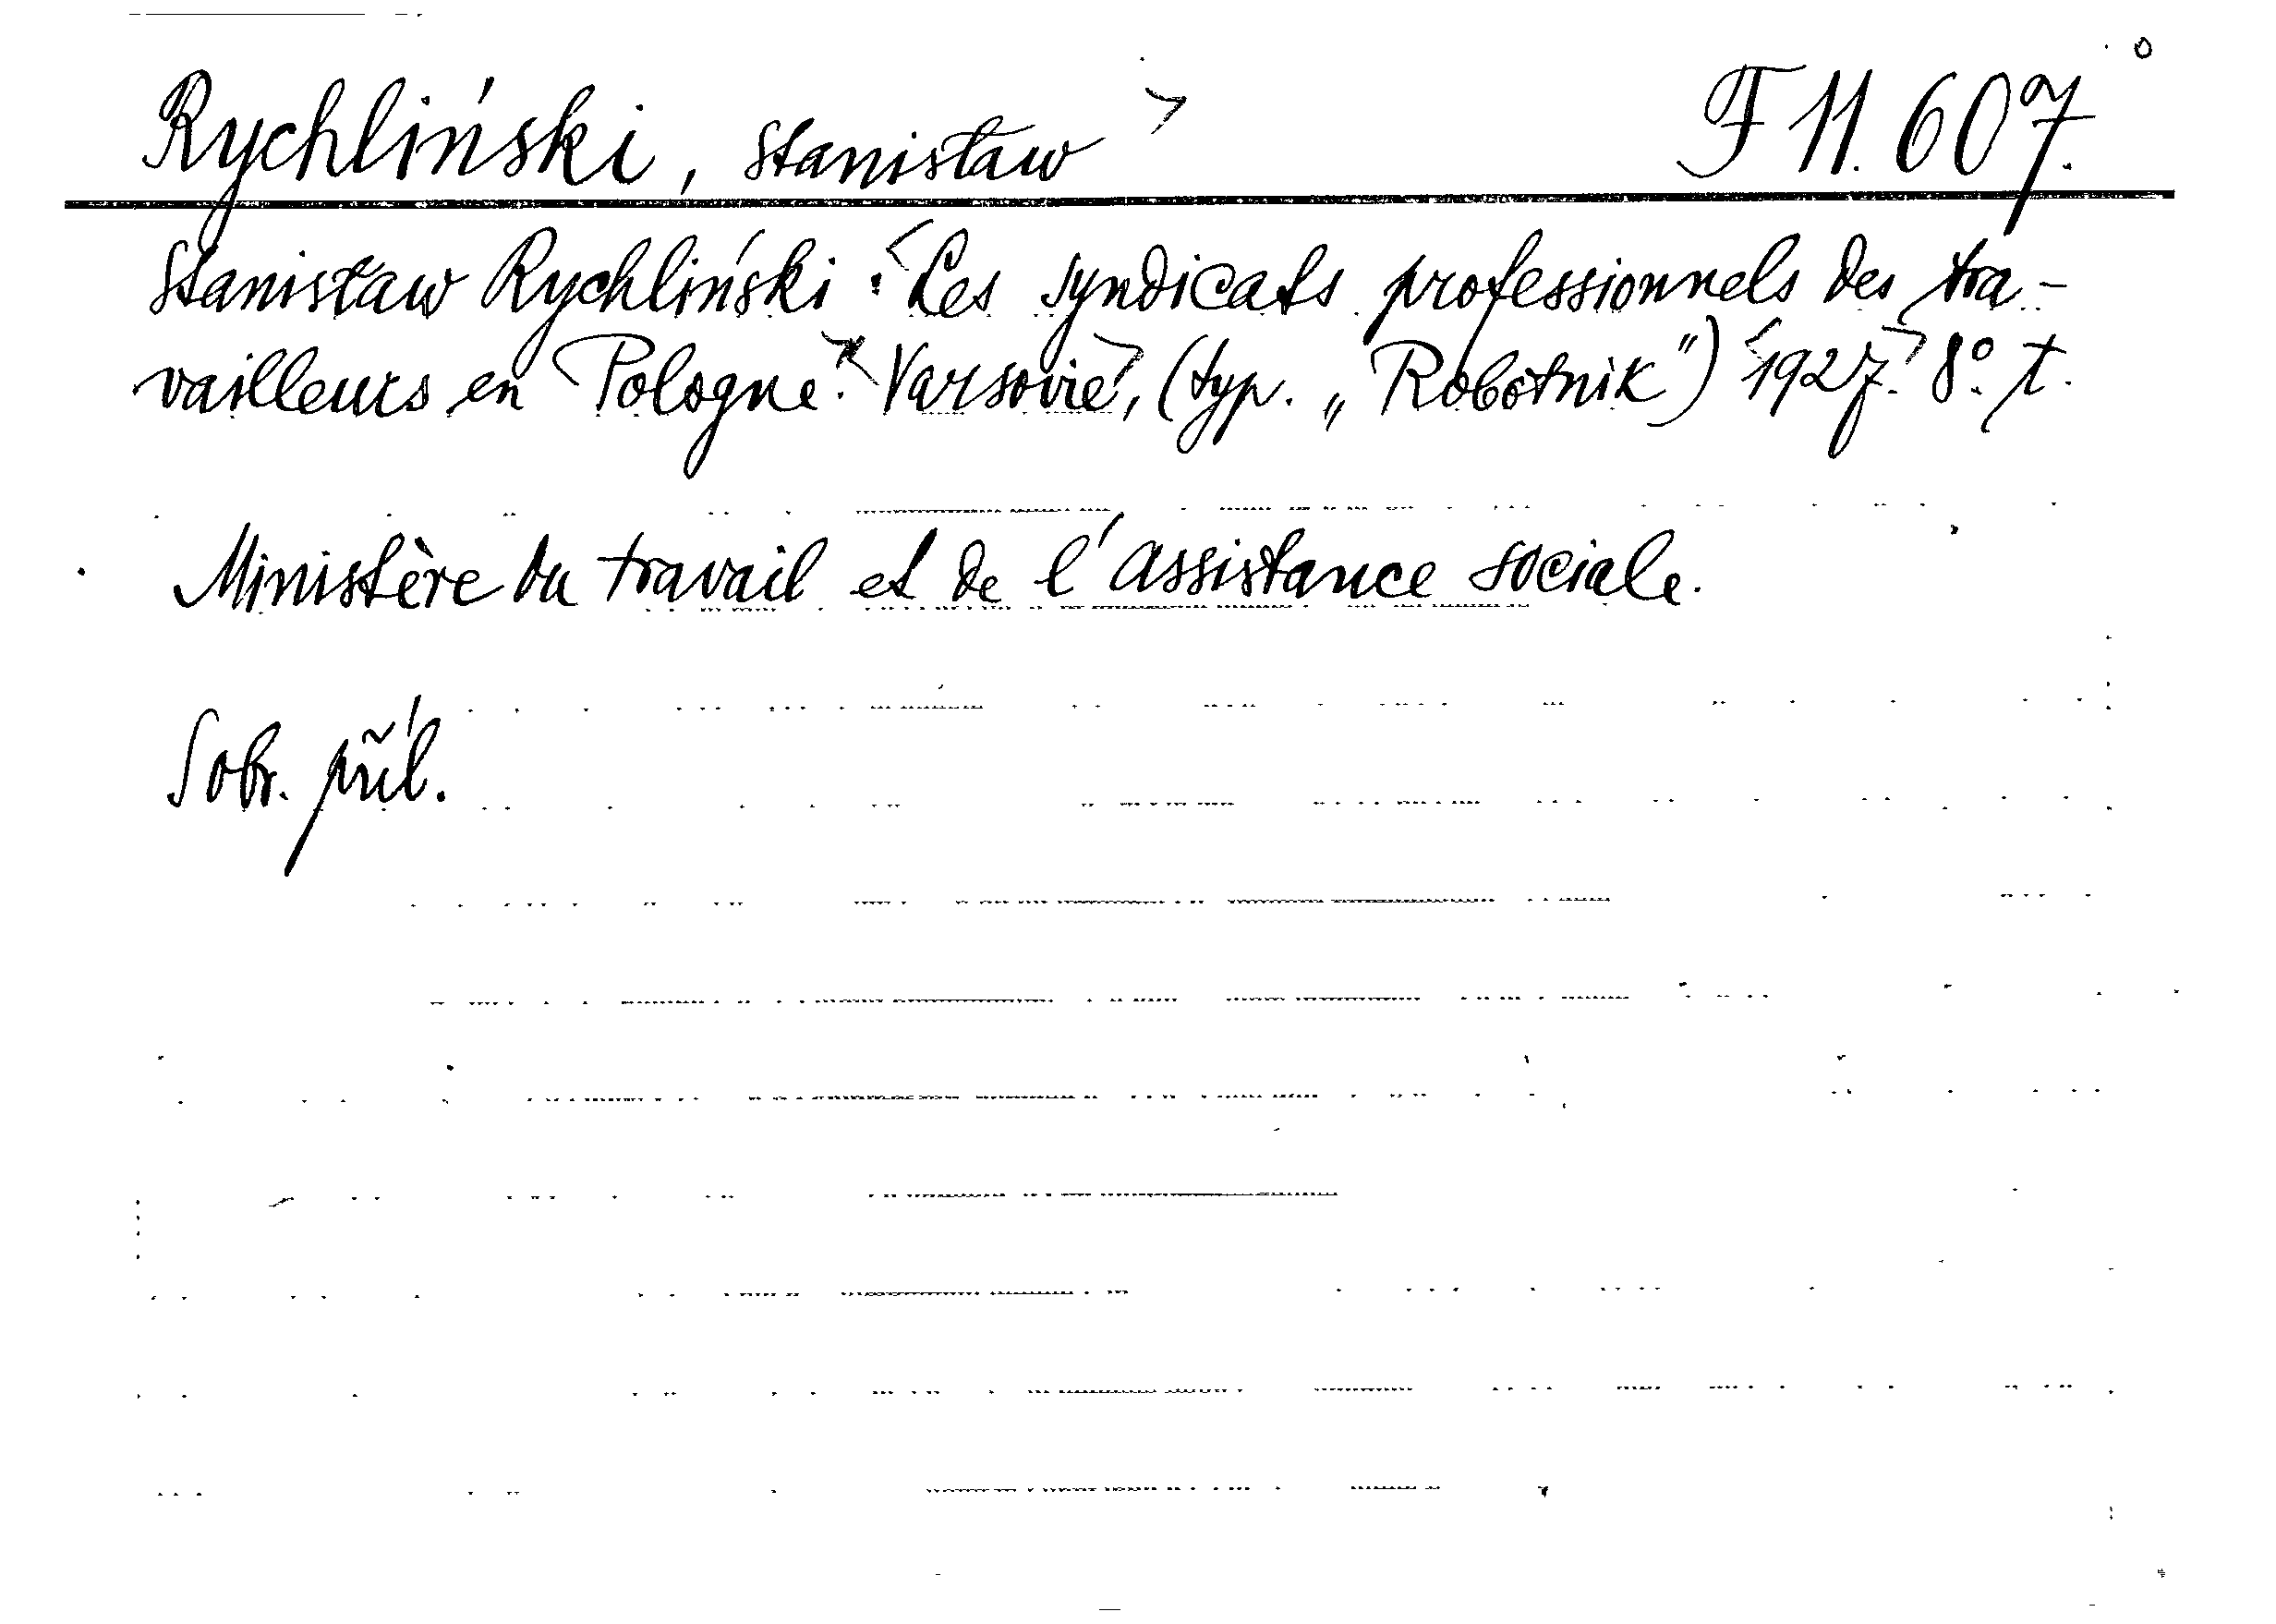 Rychliński, Stanisław F 11.607.
Stanisław Rychliński: Les syndicats professionnels des tra-
vailleurs en Pologne. Varsovie, (typ. „Robotnik") 1927. 8°. t.
Ministère du travail et de l'assistance sociale.
Sobr. příl.